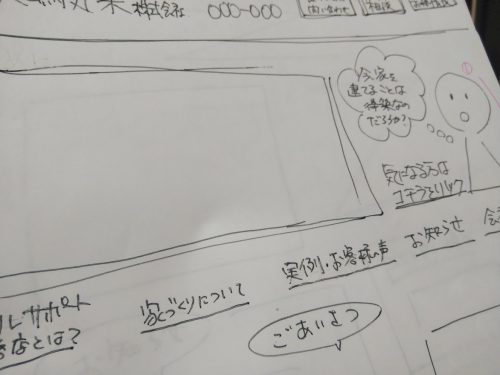 株式会社 〇〇〇-〇〇〇
今、家を
建てることは
得策なの
だろうか?
気になる方は
コチラをクリック
お知らせ
実例・お客様の声
家づくりについて
サポート
店とは?
ごあいさつ